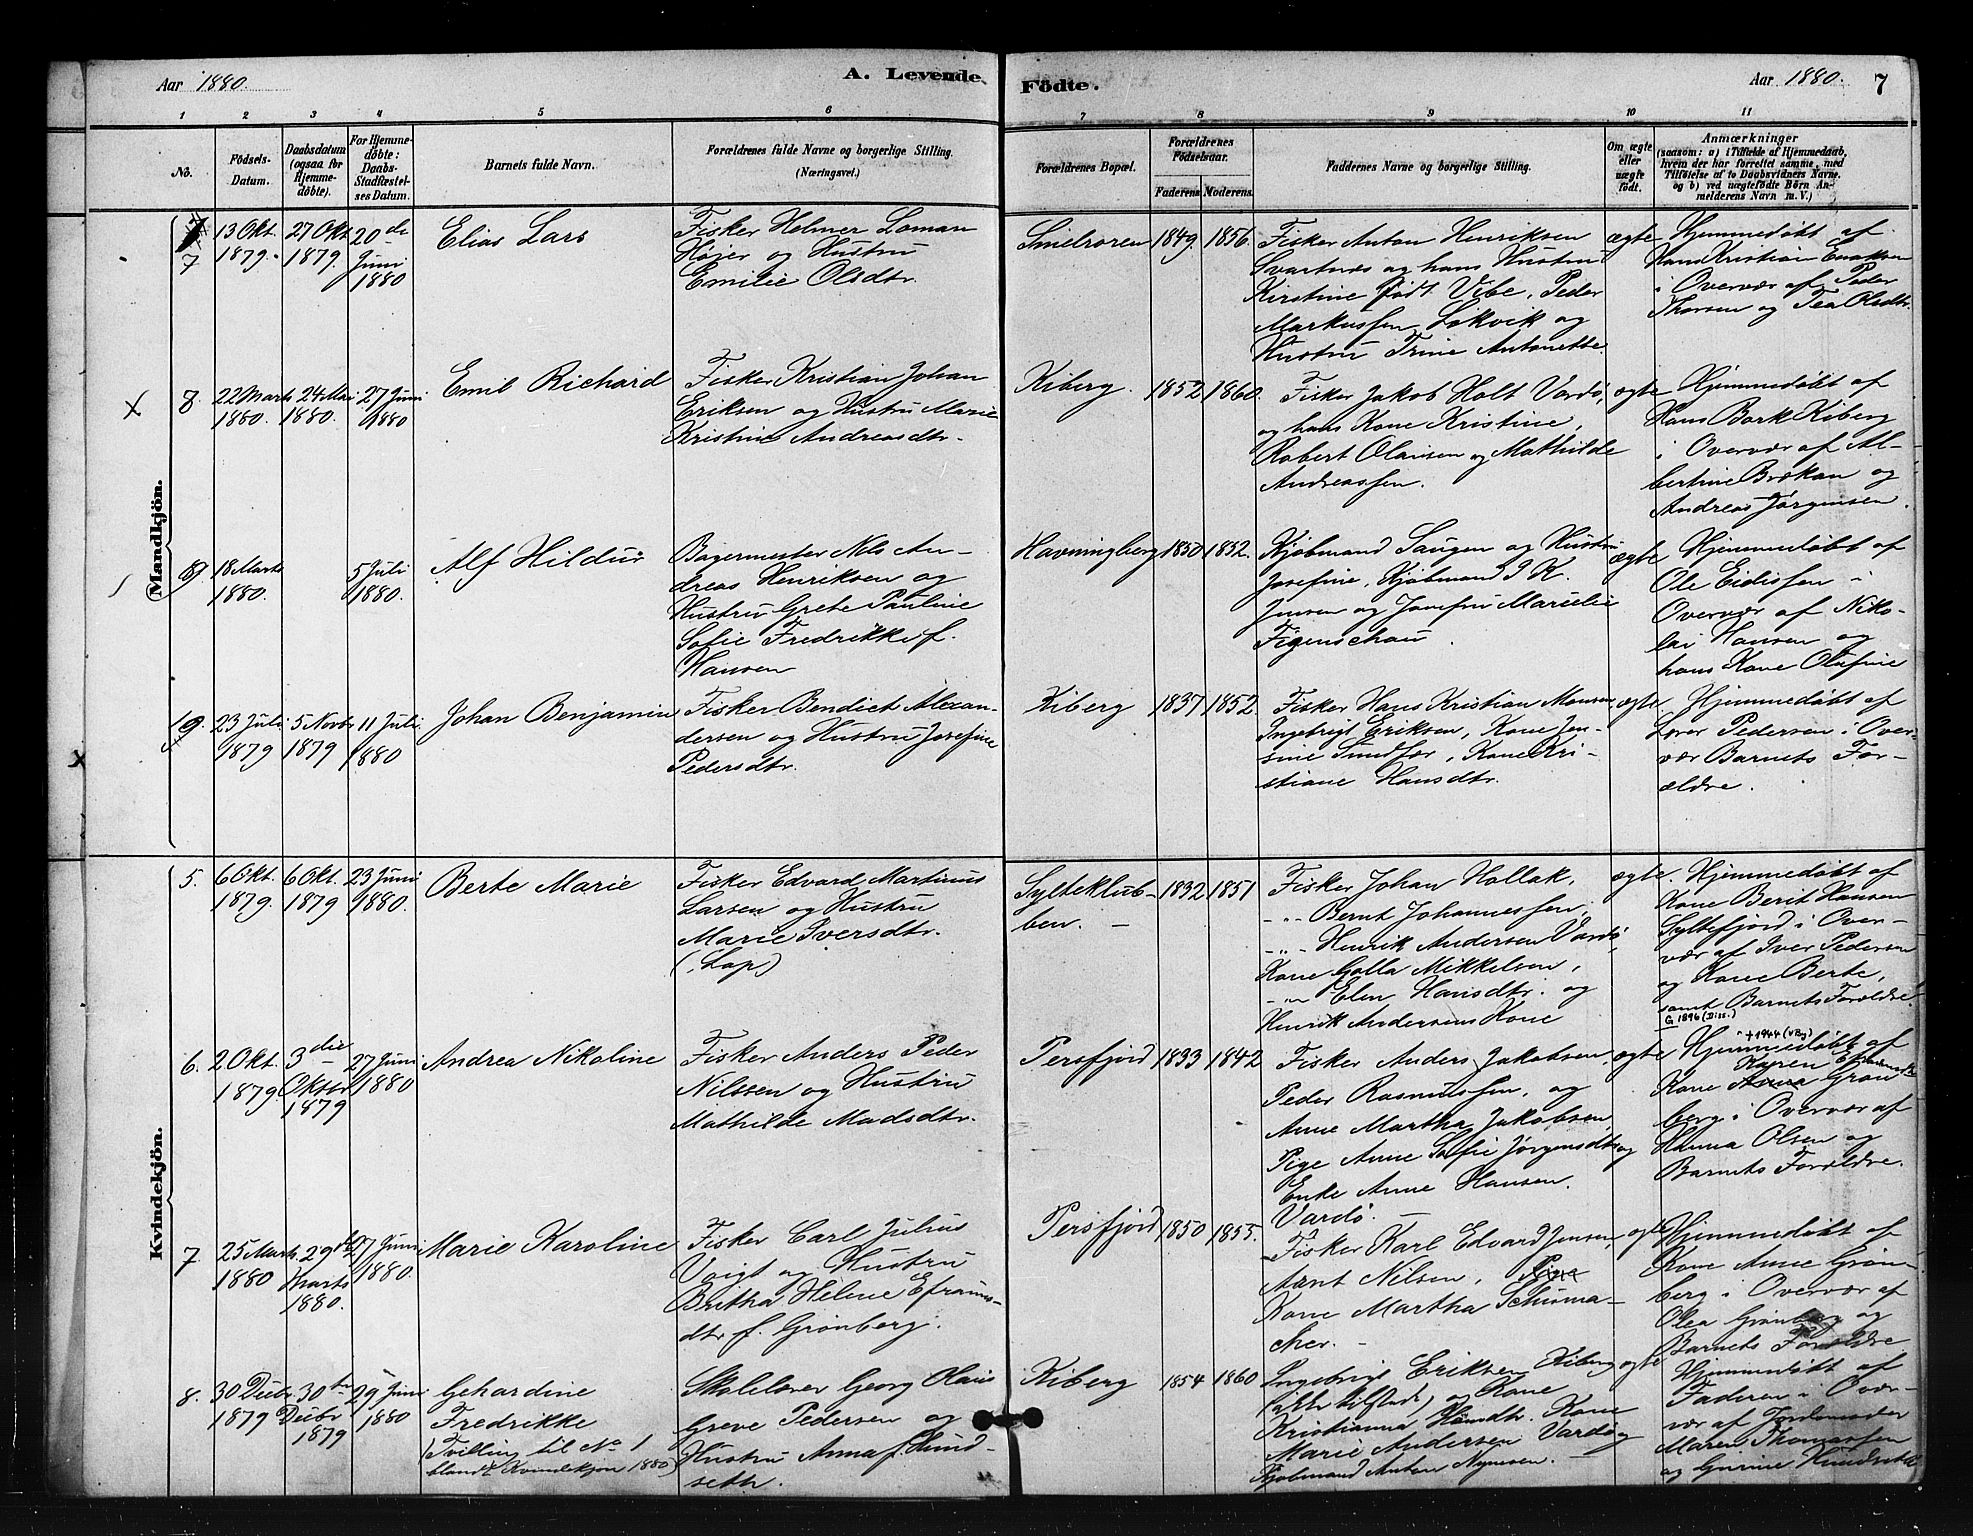 Aar 1880.
A. Levende
Födte.
Aar 1880.
7
1 2 3 4 5 6 7 8 9 10 11
No.
Födsels-
Datum.
Daabsdatum
(ogsaa for
Hjemme-
döbte).
For Hjemme-
döbte:
Daabs-
Stadfæstel-
ses Datum.
Barnets fulde Navn.
Forældrenes fulde Navne og borgerlige Stilling.
(Næringsvei.)
Forældrenes Bopæl.
Forældrenes
Födselsaar.
Faderens. Moderens.
Faddernes Navne og borgerlige Stilling.
Om ægte
eller
uægte
født.
Anmærkninger
(saasom: a) i Tilfælde af Hjemmedaab,
hvem der har forrettet samme, med
Tilföielse af to Daabsvidners Navne.
og b) ved uægtefödte Börn An-
melderens Navn m. V.)
Mandkjön.
7
13 Okt.
1879.
27 Okt
1879.
20de
Juni
1880
Elias Lars
Fisker Helmer Loman
Højer og Hustru
Emilie Olsdtr.
Smelroren
1849. 1856.
Fisker Anton Henriksen
Svartnæs og hans Hustru
Kirstine født Vibe, Peder
Markussen Lökvik og
Hustru Trine Antonette.
ægte
Hjemmedøbt af
Hans Kristian
i Overvær af Peder
Thorsen og Tea Olsdtr.
8.
22 Marts
1880.
24 Mai
1880.
27 Juni
1880
Emil Richard
Fisker Kristian Johan
Eriksen og Hustru Marie
Kristine Andreasdtr.
Kiberg.
1852 1860.
Fisker Jakob Holt Vardø,
og hans Kone Kristine,
Robert Olausen og Mathilde
Andreassen.
ægte
Hjemmedøbt af
Hans Bork Kiberg
i Overvær af Al-
bertine Brækan og
Andreas Jørgensen.
9
18 Marts
1880.
5 Juli
1880.
Alf Hildur
Bagermester Nels An-
dreas Henriksen og
Hustru Grete Pauline
Sofie Fredrikke f.
Hansen
Havningberg
1850 1852.
Kjøbmand Saugen og Hustru
Josefine, Kjøbmand I. K.
Jensen og Josefru Marcelie
Figenschau.
ægte
Hjemmedøbt af
Ole Eidissen i
Overvær af Niko-
lai Hansen og
hans Kone Olufine
19.
23 Juli
1879
5 Novbr
1879
11 Juli
1880
Johan Benjamin
Fisker Bendict Alexan-
dersen og Hustru Josefine
Pedersdtr.
Kiberg
1837 1852.
Fisker Hans Kristian Monsen
Ingebrigt Eriksen, Kone Jen-
sine Sundfær, Kone Kri-
stiane Hansdtr.
ægte
Hjemmedøbt af
Lærer Pedersen i Over-
vær Barnets For-
ældre.
Kvindekjön.
5.
6 Okt.
1879.
6 Okt.
1879
23 Juni
1880.
Berte Marie
Fisker Edvard Martinus
Larsen og Hustru
Marie Iversdtr.
(Lap)
Sylteklub-
ben. —
1832 1851
Fisker Johan Hollak,
-„- Bernt Johannessen,
-„- Henrik Andersen Vardø,
Kone Golla Mikkelsen,
-„- Elen Hansdtr. og
Henrik Andersens Kone
ægte.
Hjemmedøbt af
Kone Berit Hansen
Syltefjord i Over-
vær af Iver Pedersen
og Kone Berte,
samt Barnets Forældre.
G 1896 (Diss.)
+1944 (v By)
6.
2 Okt.
1879
3die
Oktbr
1879
27 Juni
1880
Andrea Nikoline
Fisker Anders Peder
Nilssen og Hustru
Mathilde Madsdtr.
Persfjord
1833 1842
Fisker Anders Jakobsen,
Peder Rasmussen, og
Anne Martha Jakobsen,
Pige Anne Sofie Jørgensdtr og
Enke Anne Hansen.
Vardø.
ægte
Hjemmedøbt af
Karen
Kone Anna Grøn
berg i Overvær af
Hanna Olsen og
Barnets Forældre.
7
25 Marts
1880
29de
Marts
1880.
27 Juni
1880.
Marie Karoline
Fisker Carl Julius
Voigt og Hustru
Britha Helene Efraims-
dtr f. Grønberg.
Persfjord
1850 1855.
Fisker Karl Edvard Jensen,
Arnt Nilsen, Pige
Kone Martha Schuma-
cher. —
ægte
Hjemmedøbt af
Kone Anne Grøn-
berg i Overvær af
Olea Grønberg og
Barnets Forældre
8.
30 Decbr
1879
30te
Decbr
1879
29 Juni
1880
Gehardine
Fredrikke
(Tvilling til No 1
blandt Kvindekjøn 1880)
Skolelærer Georg Olaus
Greve Pedersen og
Hustru Anna f. Lund-
seth.
Kiberg
1854 1860
Ingebrigt Eriksen Kiberg
(ikke tilstede) og Kone
Kristianna Hansdtr. Kone
Marie Andersen Vardø
Kjøbmand Anton Nymoen. —
ægte
Hjemmedøbt af
Faderen i Over-
vær af Jordemoder
Maren Thomassen
og Gurine